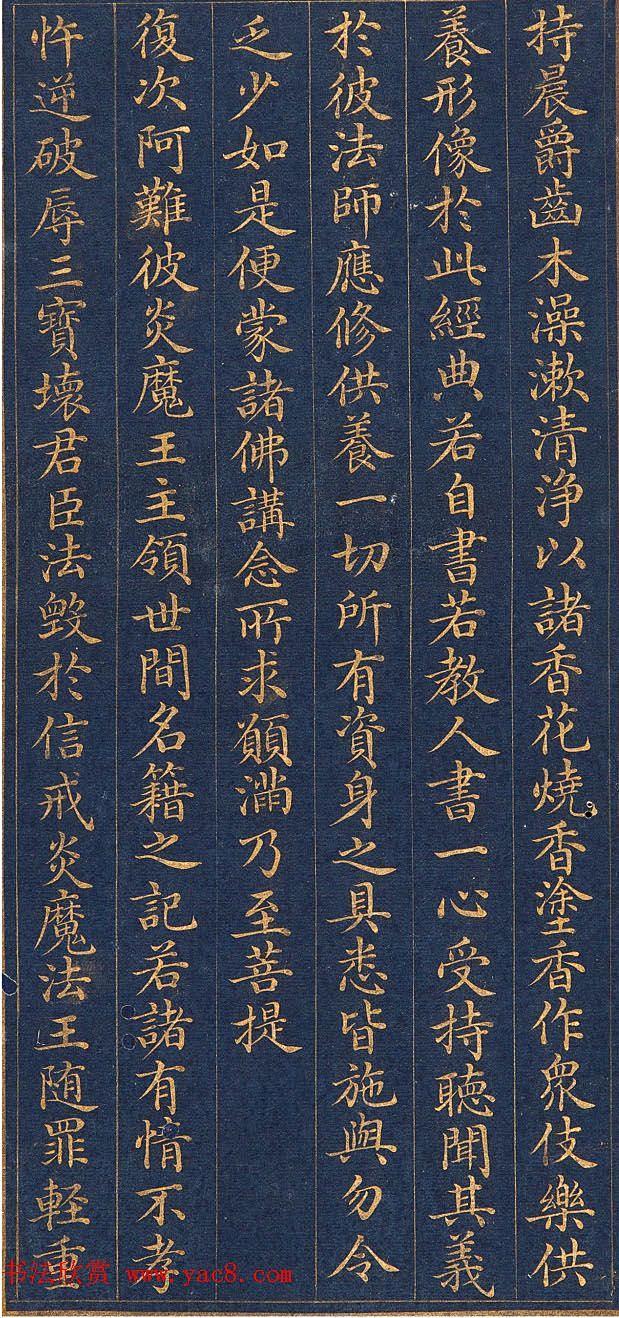 持晨爵齒木澡漱清淨以諸香花燒香塗香作衆伎樂供
養形像於此經典若自書若教人書一心受持聽聞其義
於彼法師應修供養一切所有資身之具悉皆施與勿令
乏少如是便蒙諸佛講念所求願滿乃至菩提
復次阿難彼炎魔王主領世間名籍之記若諸有情不孝
忤逆破辱三寶壞君臣法毀於信戒炎魔法王随罪軽重
书法欣赏 www.yac8.com